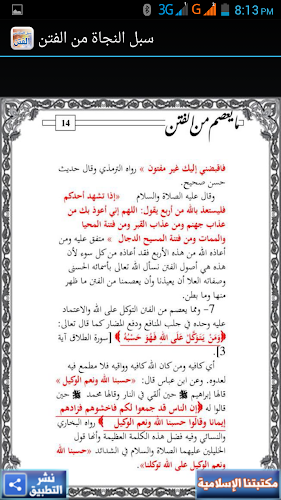 3G G 8:13 PM
سبل النجاة من الفتن
ما يعصم من الفتن
14
فاقبضني إليك غير مفتون » رواه الترمذي وقال حديث
حسن صحيح.
وقال عليه الصلاة والسلام «إذا تشهد أحدكم
فليستعذ بالله من أربع يقول: اللهم إني أعوذ بك من
عذاب جهنم ومن عذاب القبر ومن فتنة المحيا
والممات ومن فتنة المسيح الدجال » متفق عليه ومن
أعاذه الله من هذه الأربع فقد أعاذه من كل سوء لأن
هذه هي أصول الفتن نسأل الله تعالى بأسمائه الحسنى
وصفاته العلا أن يعيذنا وأن يعصمنا من الفتن ما ظهر
منها وما بطن.
7- ومما يعصم من الفتن التوكل على الله والاعتماد
عليه وحده في جلب المنافع ودفع المضار كما قال تعالى:
﴿وَمَنْ يَتَوَكَّلْ عَلَى اللَّهِ فَهُوَ حَسْبُهُ﴾ [سورة الطلاق آية
3].
أي كافيه ومن كان الله كافيه وواقيه فلا مطمع فيه
لعدوه. وعن ابن عباس قال: «حسبنا الله ونعم الوكيل »
قالها إبراهيم حين ألقي في النار وقالها محمد ﷺ حين
قالوا له ﴿إن الناس قد جمعوا لكم فاخشوهم فزادهم
إيمانا وقالوا حسبنا الله ونعم الوكيل﴾ رواه البخاري
والنسائي وفيه فضل هذه الكلمة العظيمة وأنها قول
الخليلين عليهما الصلاة والسلام في الشدائد «حسبنا
الله ونعم الوكيل على الله توكلنا».
نشر التطبيق
مكتبتنا الإسلامية